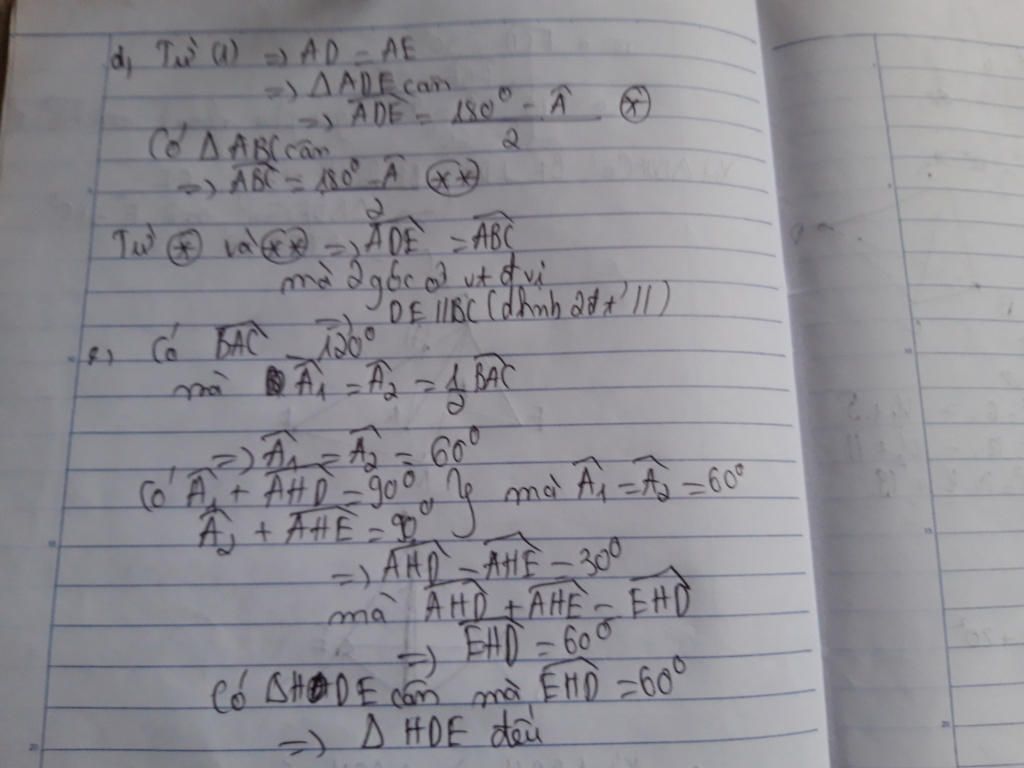 d, Từ (1) => AD = AE
=> ΔADE cân
=> ADE^ = 180° - A^ / 2 (*)
Có ΔABC cân
=> ABC^ = 180° - A^ / 2 (**)
Từ (*) và (**) => ADE^ = ABC^
mà 2 góc ở vt đ vị
=> DE // BC (dhnb 2đt' //)
e, Có BAC^ = 120°
mà A1^ = A2^ = 1/2 BAC^
=> A1^ = A2^ = 60°
Có A1^ + AHD^ = 90° } mà A1^ = A2^ = 60°
A2^ + AHE^ = 90°
=> AHD^ = AHE^ = 30°
mà AHD^ + AHE^ = EHD^
=> EHD^ = 60°
Có ΔHDE cân mà EHD^ = 60°
=> Δ HDE đều